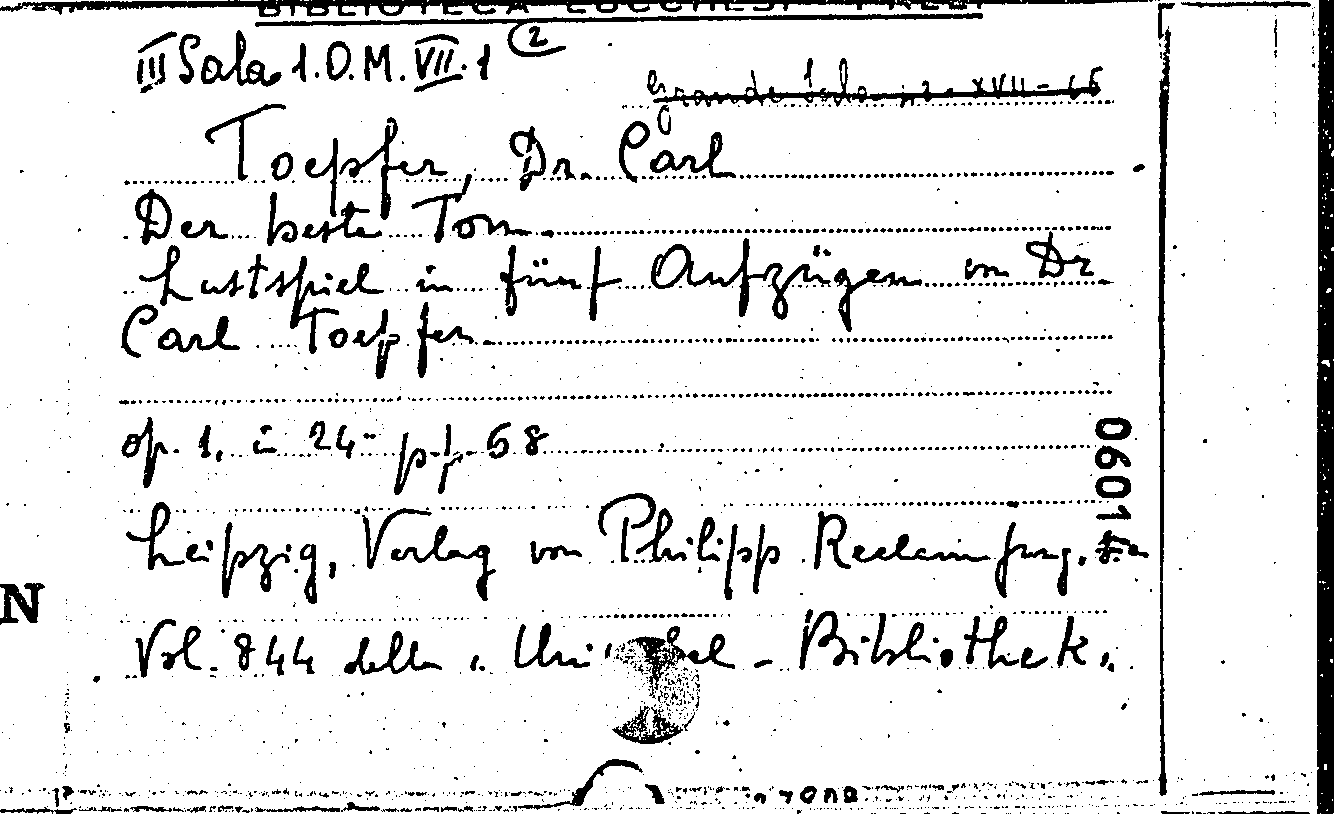 BIBLIOTECA LUCCHESI - PALLI
III Sala 1.O.M.VII.1 (2)
Grande Sala 12- XVII- 46
Toepfer, Dr. Carl
Der beste Ton.
Lustspiel in fünf Aufzügen von Dr.
Carl Toepfer.
op. 1, in 24- p.p. 68
Leipzig, Verlag von Philipp Reclam jung. s.a.
Vol. 844 della "Uni sel - Bibliothek"
06014
N